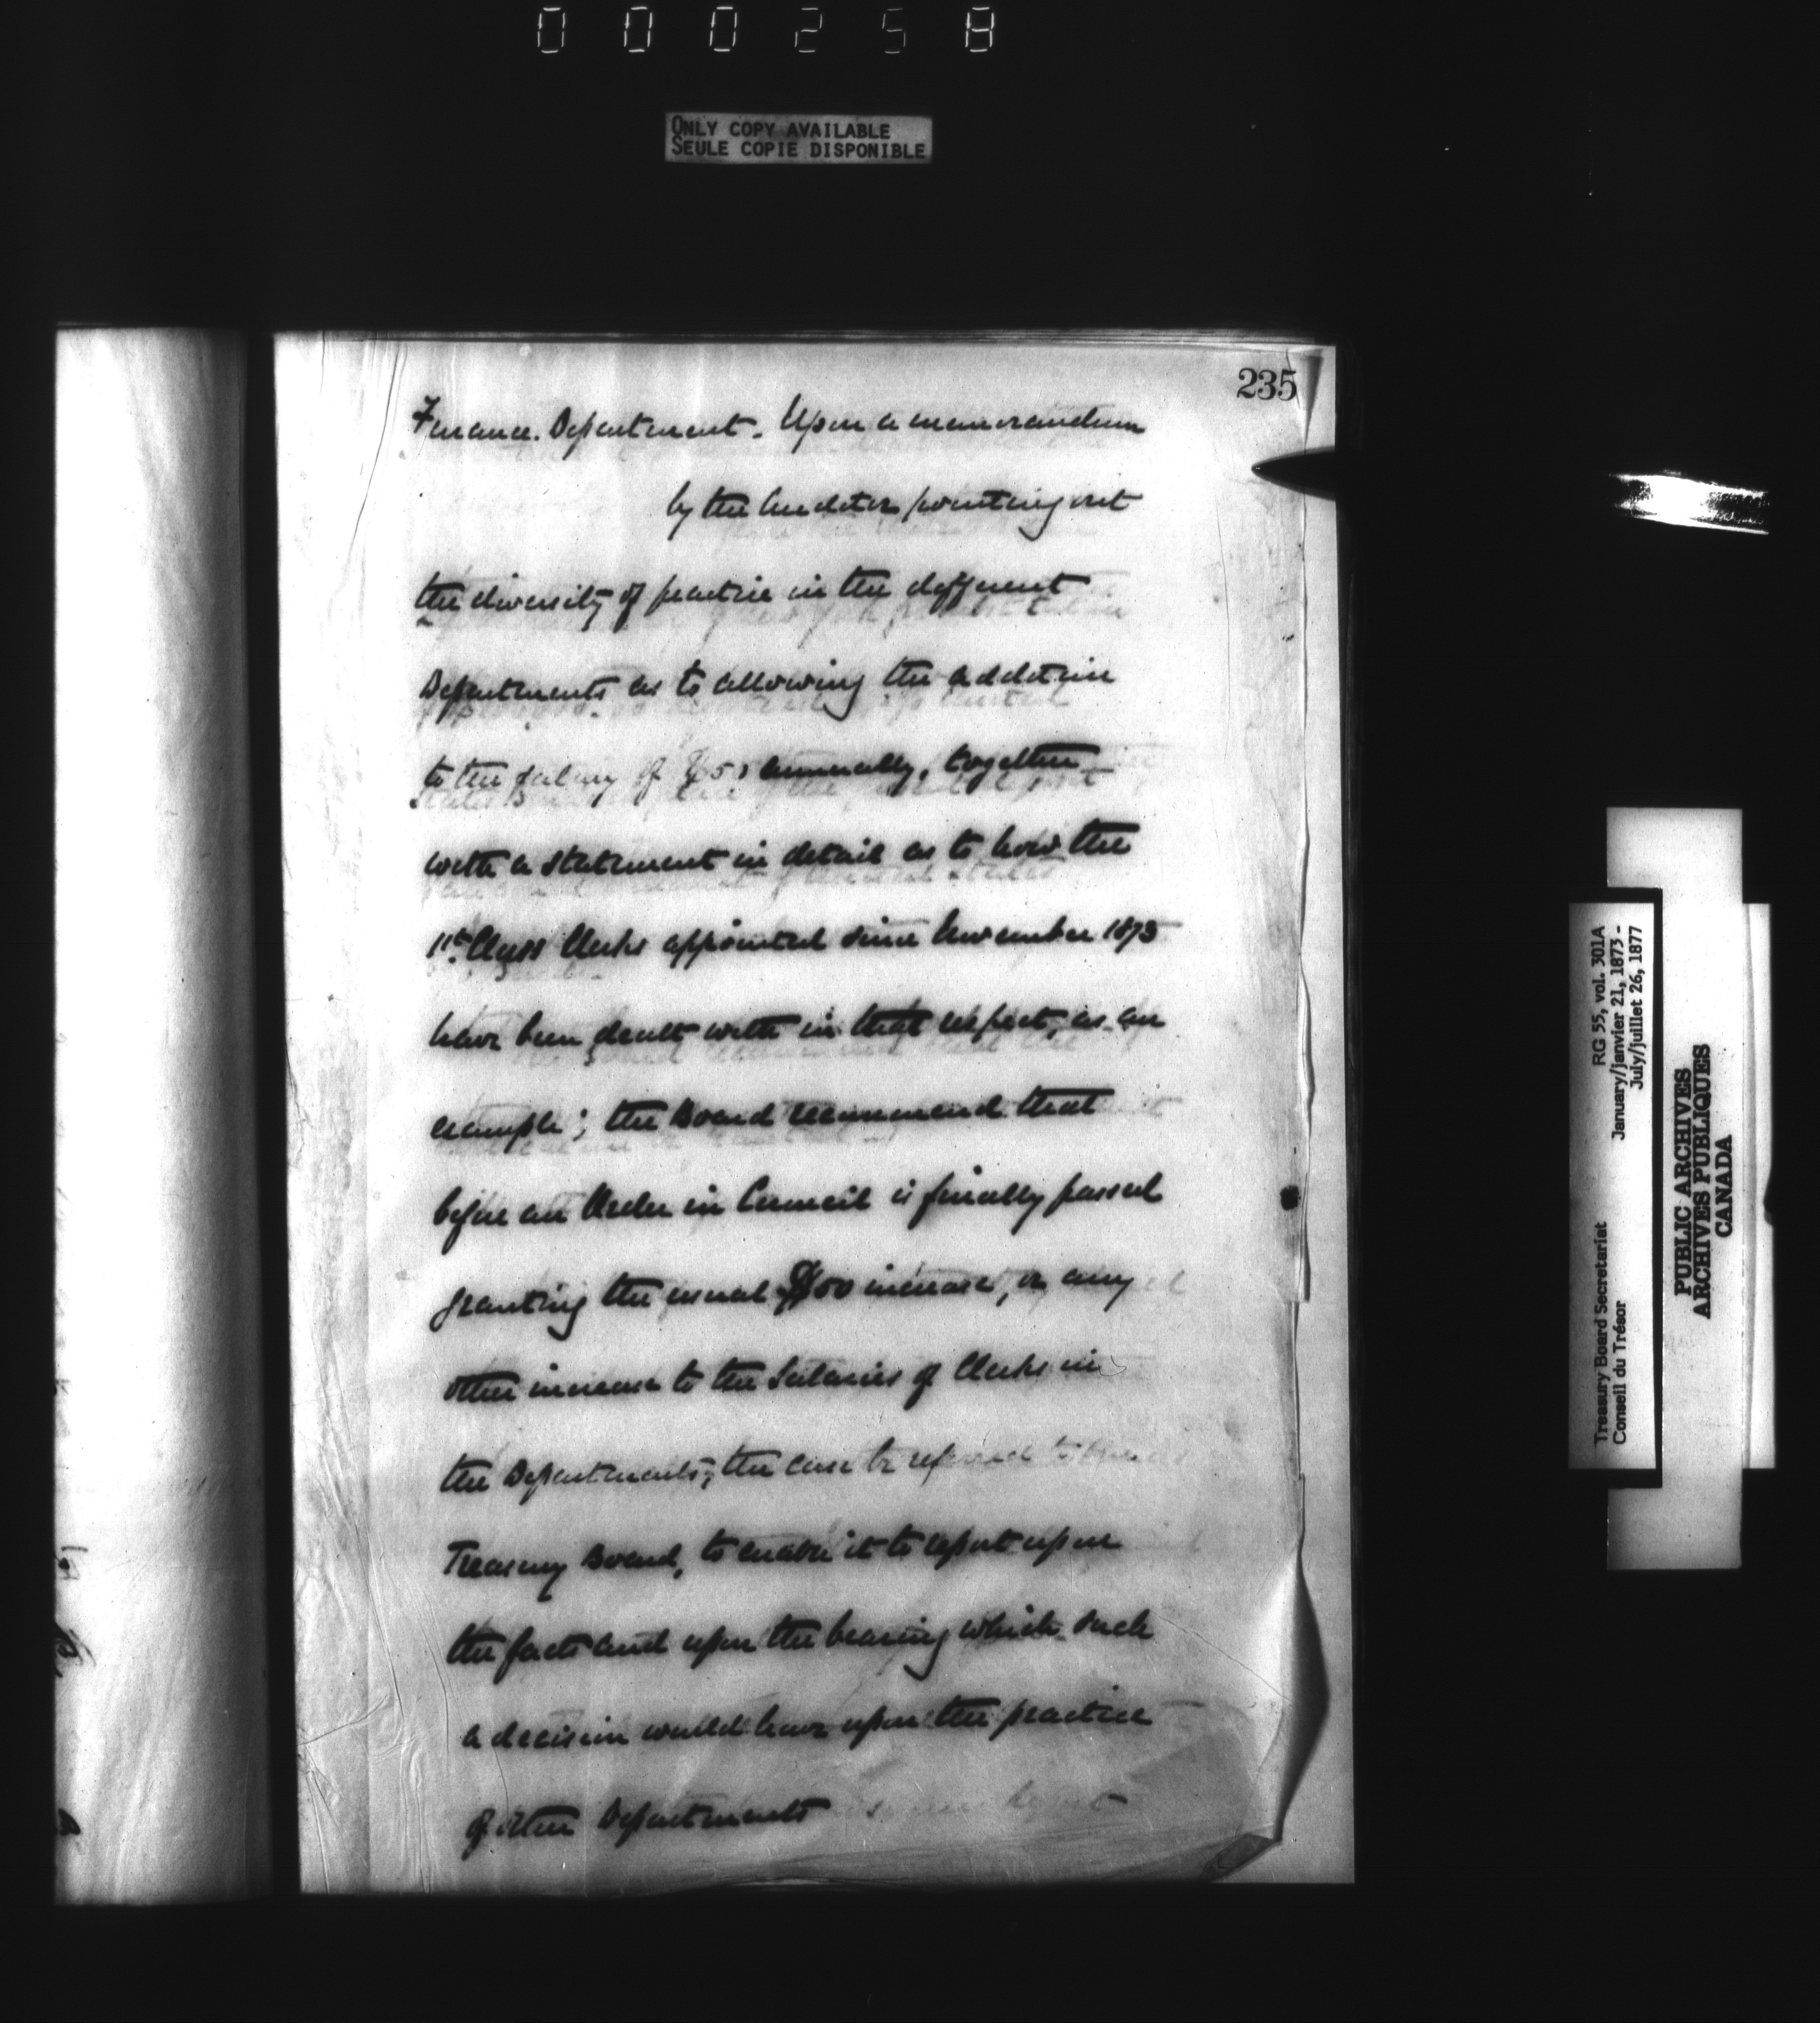 000258
ONLY COPY AVAILABLE
SEULE COPIE DISPONIBLE
235
Finance Department. Upon a memorandum
by the Auditor pointing out
the diversity of practice in the different
Departments as to allowing the addition
to the salary of $50 annually, together
with a statement in detail as to how the
1st Class Clerks appointed since November 1873
have been dealt with in that respect, as an
example; the Board recommend that
before an Order in Council is finally passed
granting the usual $50 increase, or any
other increase to the Salaries of Clerks in
the Departments, the case be referred to the
Treasury Board, to enable it to report upon
the facts and upon the bearing which such
a decision would have upon the practice
of other Departments
Treasury Board Secretariat RG 55, vol. 301A
Conseil du Trésor January/janvier 21, 1873 -
July/juillet 26, 1877
PUBLIC ARCHIVES
ARCHIVES PUBLIQUES
CANADA